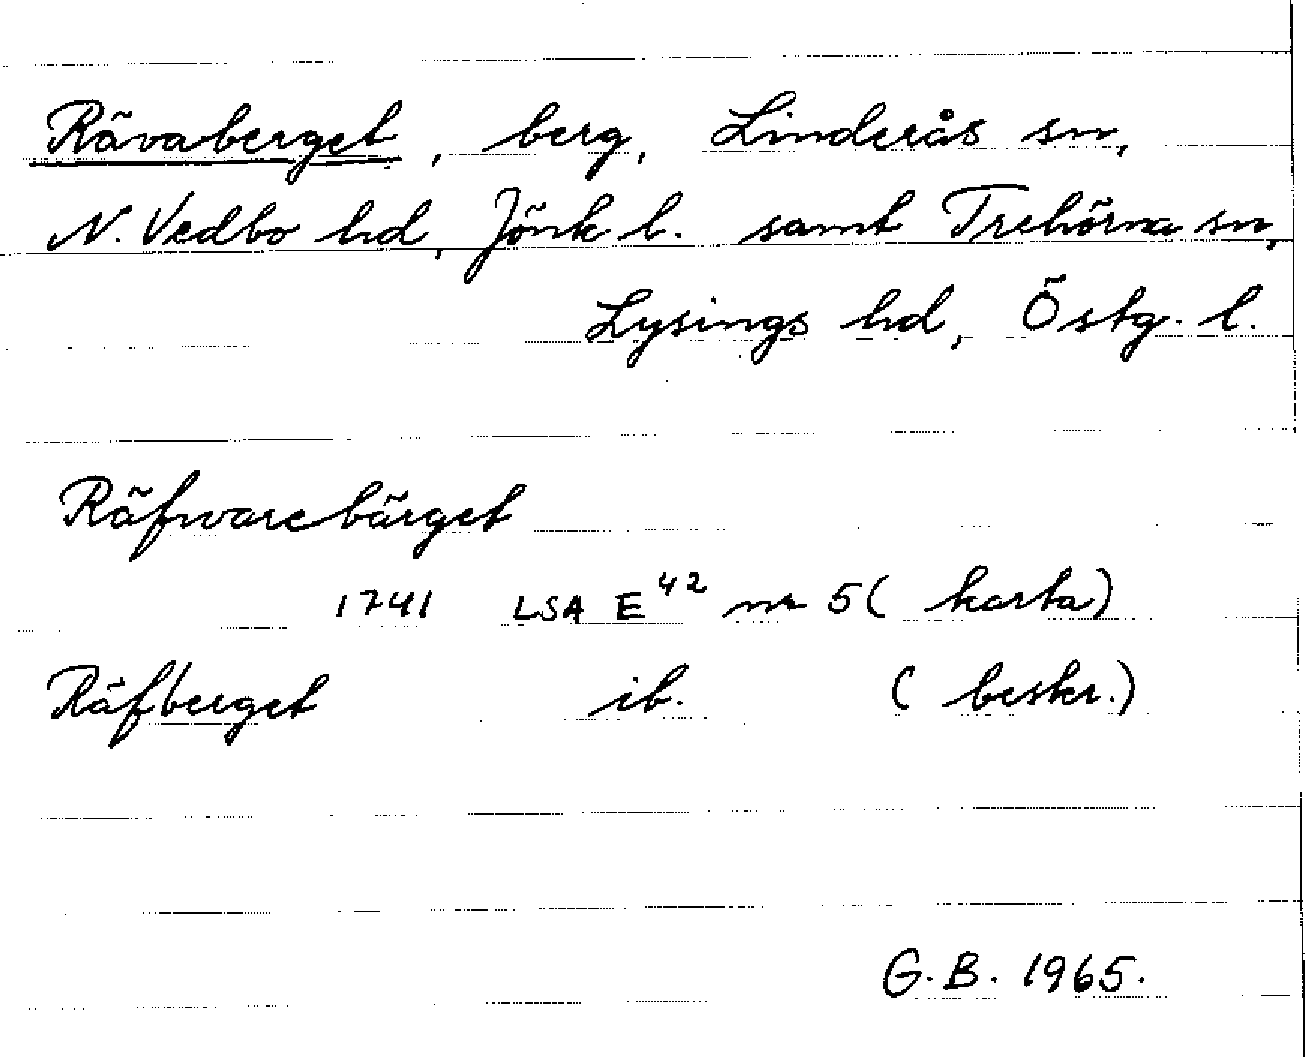 Rävaberget, berg, Linderås sn,
N. Vedbo hd, Jönk l. samt Trehörna sn,
Lysings hd, Östg. l.
Räfwarebärget
1741 LSA E⁴² nr 5 (karta)
Räfberget ib. (beskr.)
G.B. 1965.